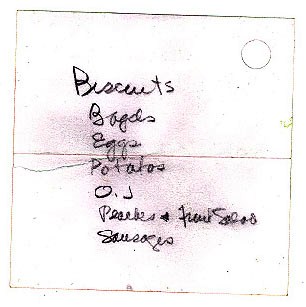 Biscuits
Bagels
Eggs
Potatos
O.J
Peaches + Fruit Salad
Sausages